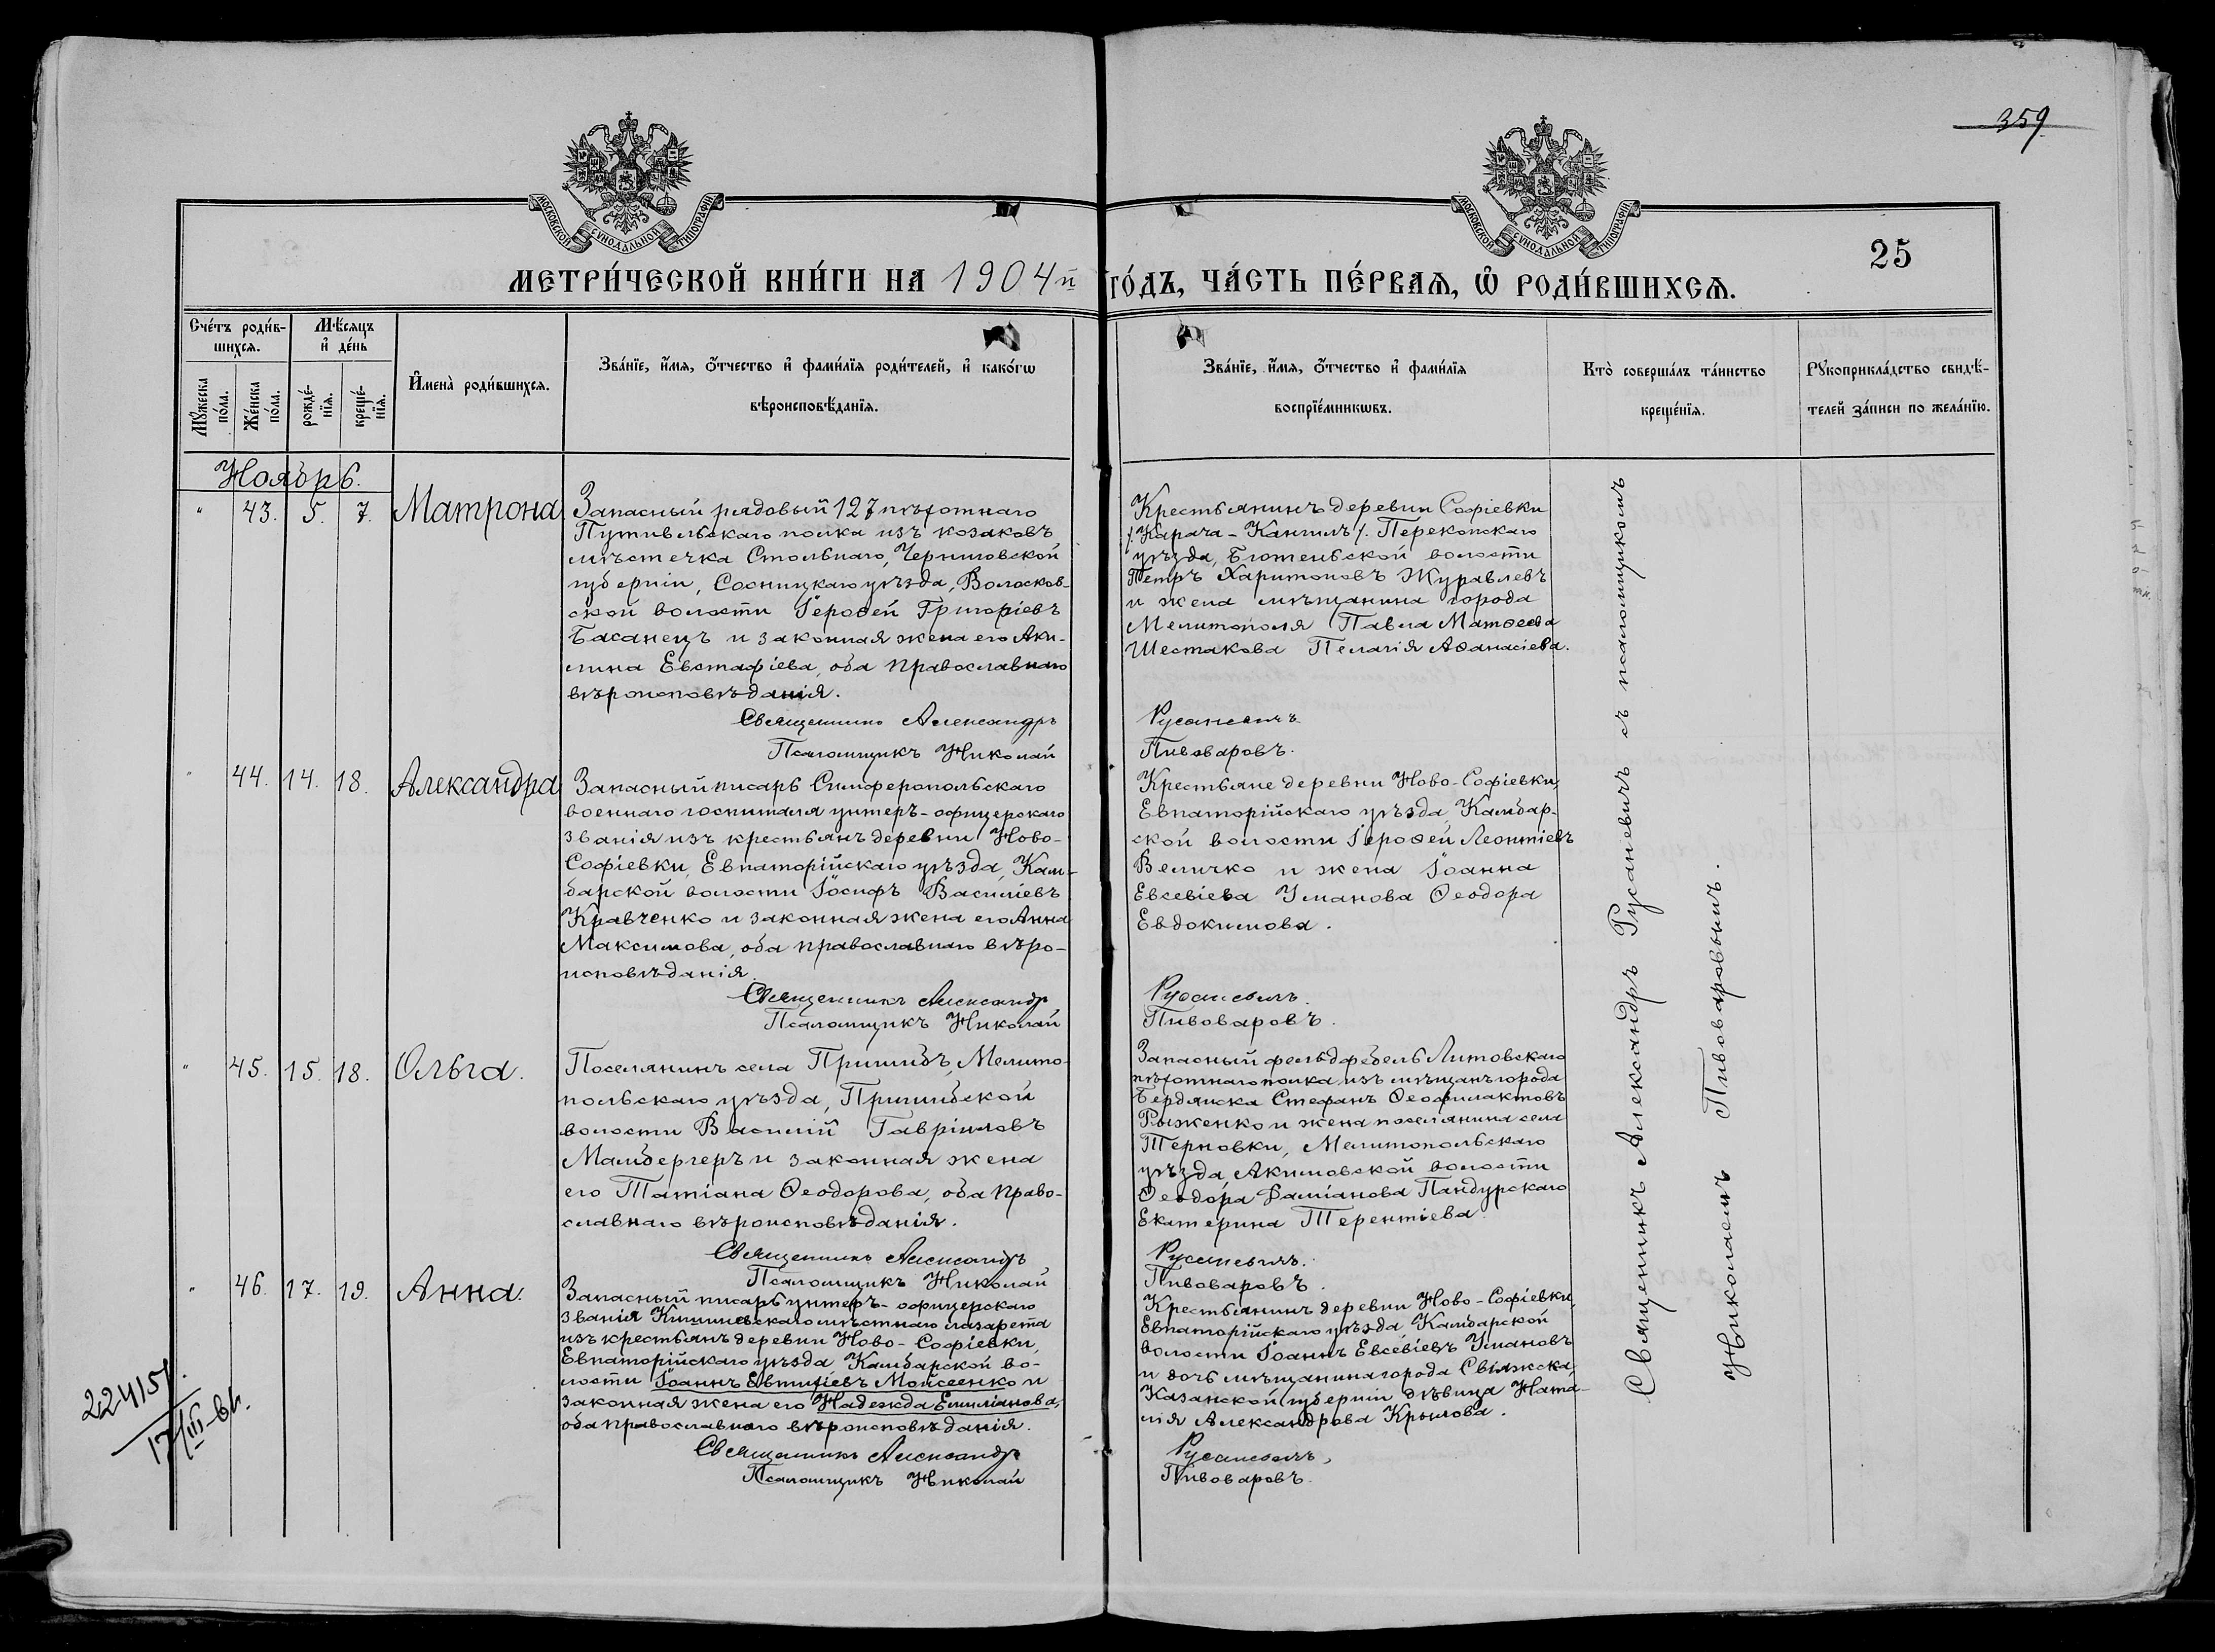 359
МОСКОВСКОЙ СѴНОДАЛЬНОЙ ТИПОГРАФІИ
МОСКОВСКОЙ СѴНОДАЛЬНОЙ ТИПОГРАФІИ
25
МЕТРИ́ЧЕСКОЙ КНИ́ГИ НА 1904й ГО́ДЪ, ЧА́СТЬ ПЕ́РВАѦ, Ѡ҆ РОДИ́ВШИХСѦ.
Сче́тъ роди́в-
шихсѧ.
Мѣ́сяцъ
и҆ де́нь
Мꙋ́жеска
по́ла.
Же́нска
по́ла.
рожде́-
нїѧ.
креще́-
нїѧ.
И҆мена̀ роди́вшихсѧ.
Зва́нїе, и҆́мѧ, ѻ҆́тчество и҆ фами́лїѧ роди́телей, и҆ како́гѡ
вѣроисповѣ́данїѧ.
Зва́нїе, и҆́мѧ, ѻ҆́тчество и҆ фами́лїѧ
воспрїе́мникѡвъ.
Кто̀ соверша́лъ та́инство
креще́нїѧ.
Рꙋкоприкла́дство свидѣ́-
телей за́писи по жела́нїю.
Ноябрь.
" 43. 5. 7. Матрона
Запасный рядовый 127 пѣхотнаго
Путивльскаго полка изъ козаковъ
мѣстечка Стольнаго, Черниговской
губерніи, Сосницкаго уѣзда, Волосков-
ской волости Іероѳей Григоріевъ
Басанецъ и законная жена его Аки-
лина Евстафіева, оба православнаго
вѣроисповѣданія.
Священникъ Александръ
Псаломщикъ Николай
Крестьянинъ деревни Софіевки
/Карача-Кангилъ/. Перекопскаго
уѣзда, Бютеньской волости
Петръ Харитоновъ Журавлевъ
и жена мѣщанина города
Мелитополя Павла Матѳеева
Шестакова Пелагія Аѳанасіева.
Русаневичъ
Пивоваровъ.
" 44. 14. 18. Александра
Запасный писарь Симферопольскаго
военнаго госпиталя унтеръ-офицерскаго
званія изъ крестьянъ деревни Ново-
Софіевки, Евпаторійскаго уѣзда, Кам-
барской волости Іосифъ Василіевъ
Кравченко и законная жена его Анна
Максимова, оба православнаго вѣро-
исповѣданія.
Священникъ Александръ
Псаломщикъ Николай
Крестьяне деревни Ново-Софіевки,
Евпаторійскаго уѣзда, Камбар-
ской волости Іероѳей Леонтіевъ
Величко и жена Іоанна
Евсевіева Уманова Ѳеодора
Евдокимова.
Русаневичъ.
Пивоваровъ.
" 45. 15. 18. Ольга.
Поселянинъ села Пришибъ, Мелито-
польскаго уѣзда, Пришибской
волости Василій Гавріиловъ
Мамбергеръ и законная жена
его Татіана Ѳеодорова, оба право-
славнаго вѣроисповѣданія.
Священникъ Александръ
Псаломщикъ Николай
Запасный фельдфебель Литовскаго
пѣхотнаго полка изъ мѣщанъ города
Бердянска Стефанъ Ѳеофилактовъ
Рыженко и жена поселянина села
Терновки, Мелитопольскаго
уѣзда, Акимовской волости
Ѳеодора Даміанова Пандурскаго
Екатерина Терентіева.
Русаневичъ.
Пивоваровъ.
" 46. 17. 19. Анна.
Запасный писарь унтеръ-офицерскаго
званія Кишиневскаго мѣстнаго лазарета
изъ крестьянъ деревни Ново-Софіевки,
Евпаторійскаго уѣзда Камбарской во-
лости Іоаннъ Евтихіевъ Мойсеенко и
законная жена его Надежда Емиліанова,
оба православнаго вѣроисповѣданія.
Священникъ Александръ
Псаломщикъ Николай
Крестьянинъ деревни Ново-Софіевки,
Евпаторійскаго уѣзда, Камбарской
волости Іоаннъ Евсевіевъ Умановъ
и дочь мѣщанина города Свіяжска,
Казанской губерніи дѣвица Ната-
лія Александрова Крылова.
Русаневичъ,
Пивоваровъ.
Священникъ Александръ Русаневичъ съ псаломщикомъ
Николаемъ Пивоваровымъ.